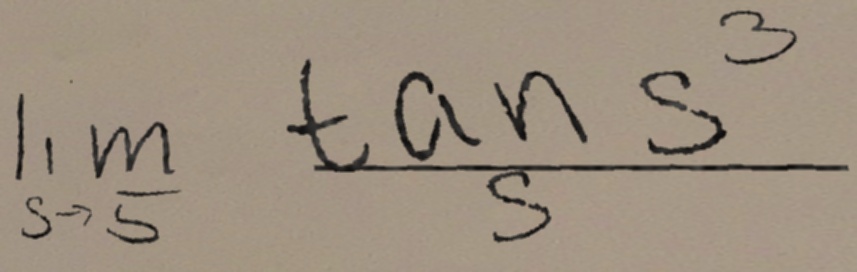 lim_{s→5} \frac{tan s^3}{s}